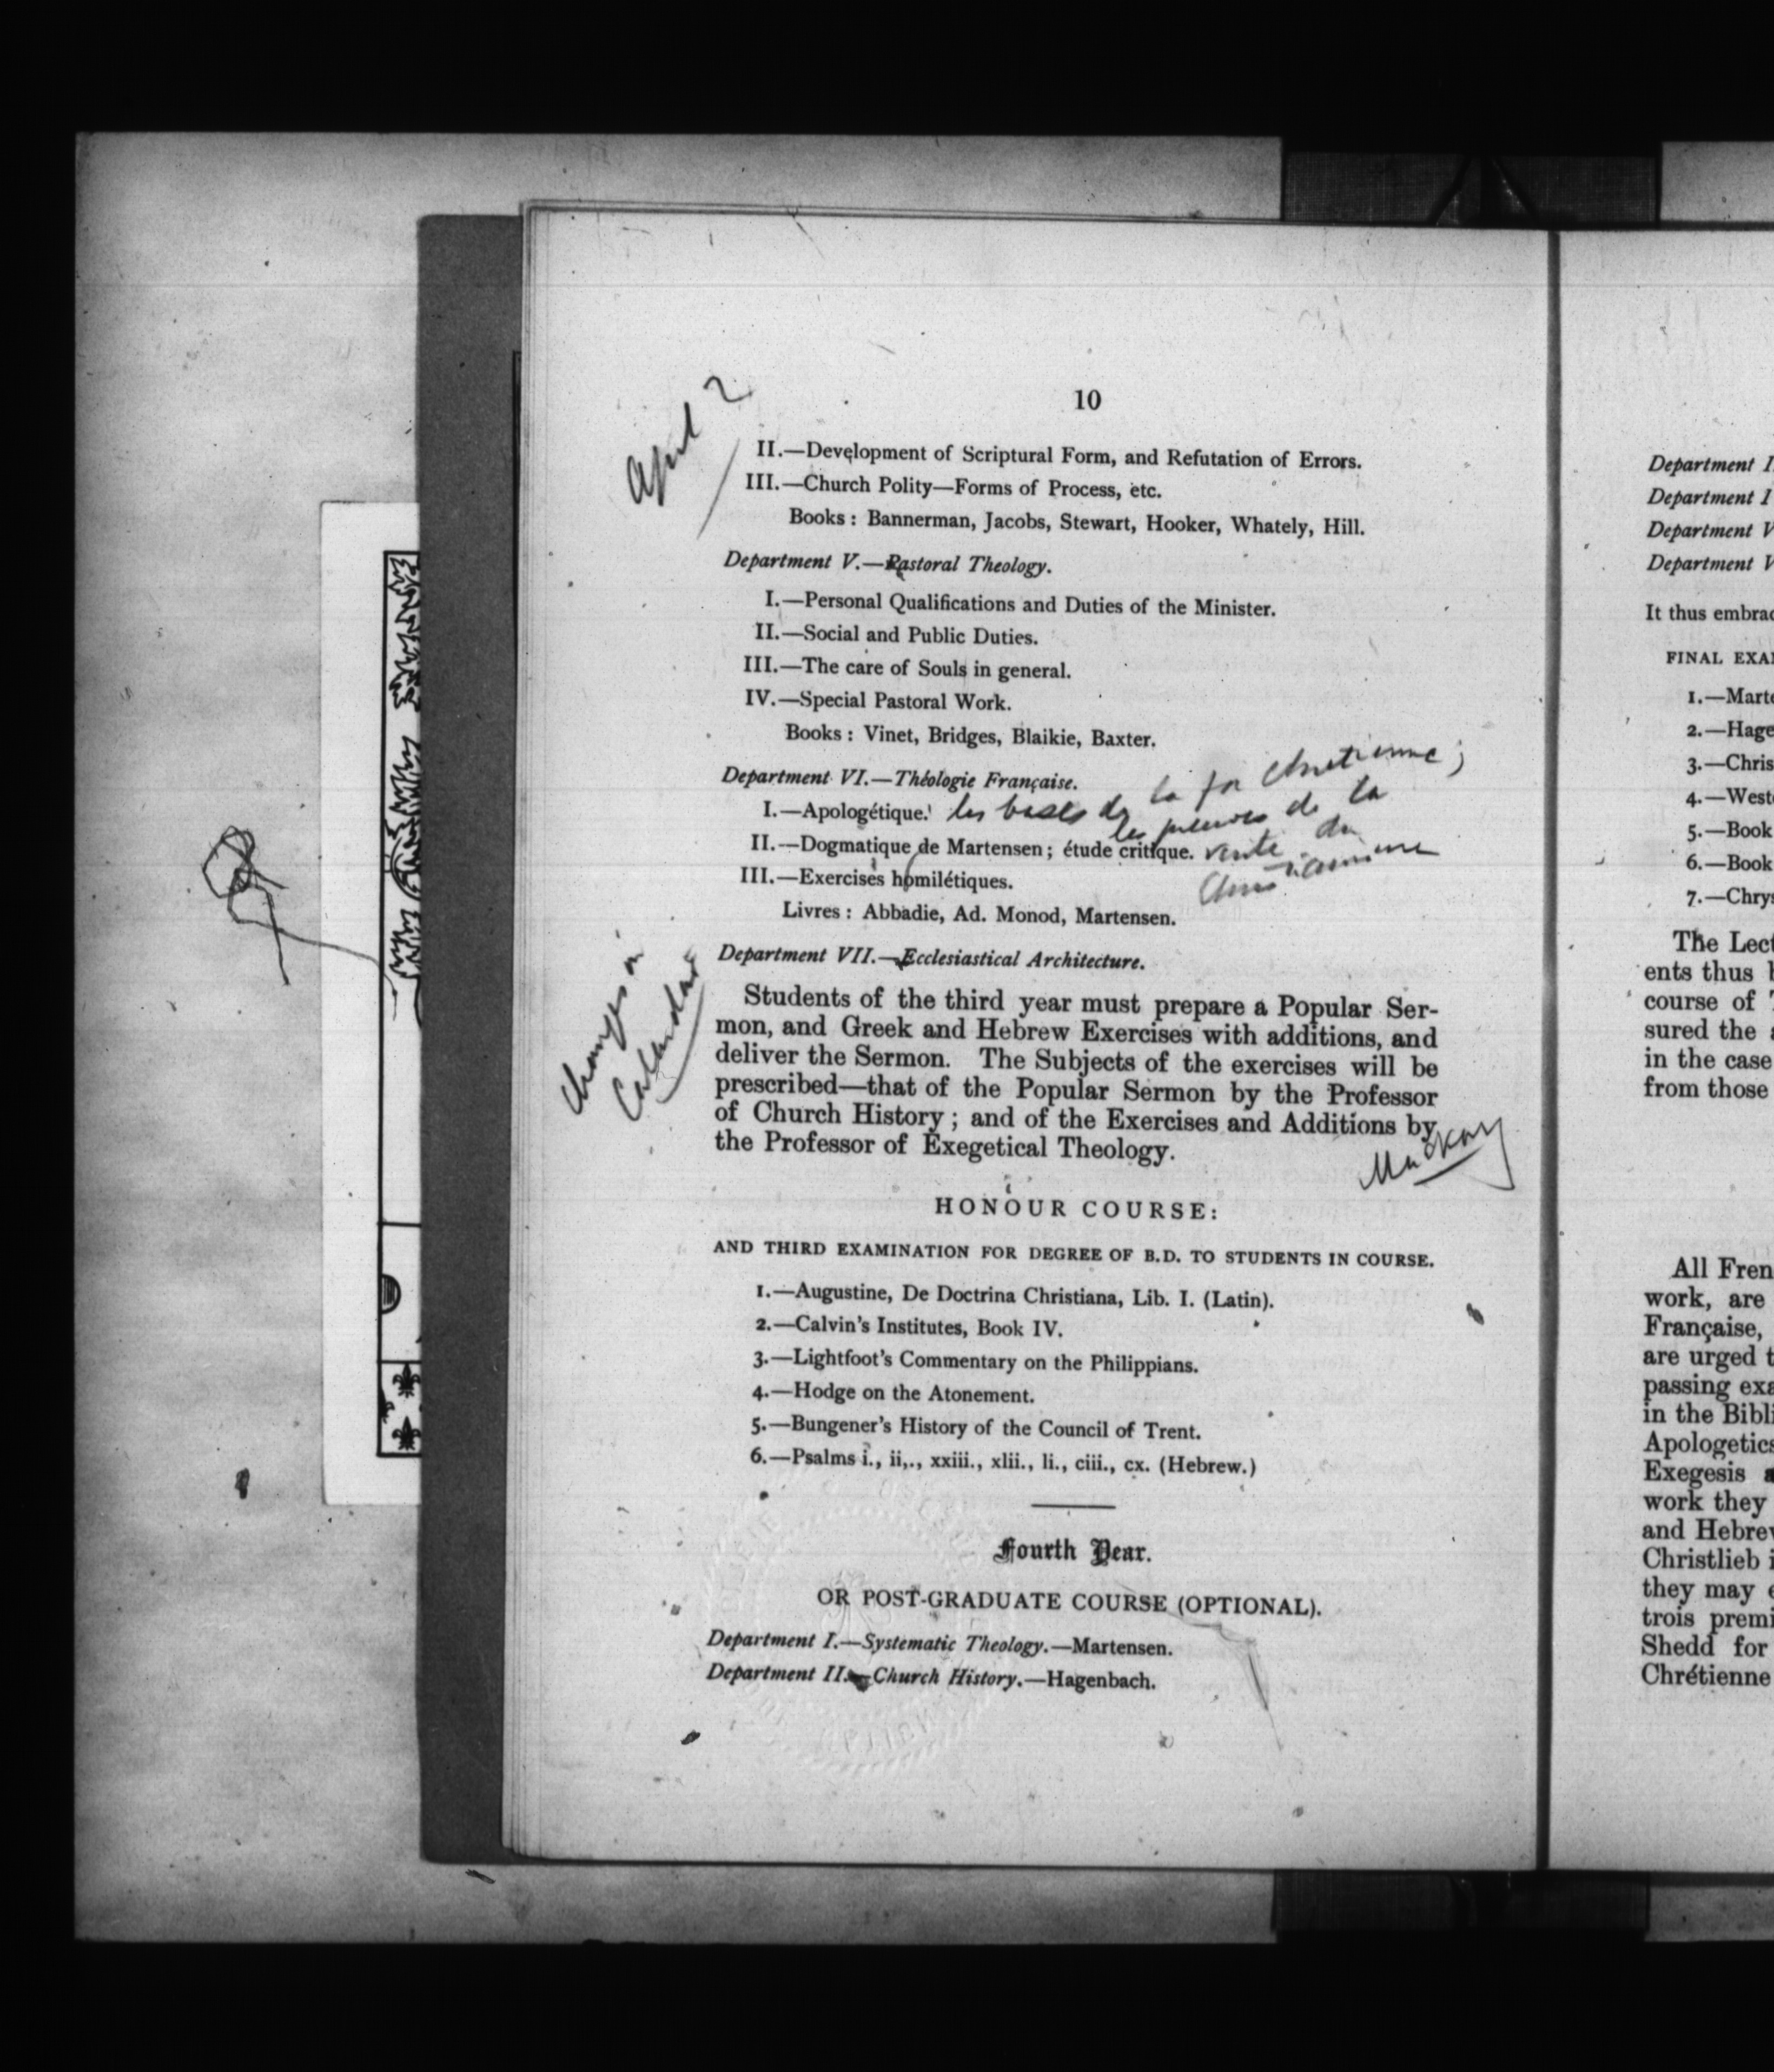 10
April 2
II.—Development of Scriptural Form, and Refutation of Errors.
III.—Church Polity—Forms of Process, etc.
Books: Bannerman, Jacobs, Stewart, Hooker, Whately, Hill.
Department V.—Pastoral Theology.
I.—Personal Qualifications and Duties of the Minister.
II.—Social and Public Duties.
III.—The care of Souls in general.
IV.—Special Pastoral Work.
Books: Vinet, Bridges, Blaikie, Baxter.
Department VI.—Théologie Française.
I.—Apologétique. les bases de la foi chretienne;
les preuves de la
II.—Dogmatique de Martensen; étude critique. verite du
Christianisme
III.—Exercises homilétiques.
Livres: Abbadie, Ad. Monod, Martensen.
Changes in
Calendar
Department VII.—Ecclesiastical Architecture.
Students of the third year must prepare a Popular Ser-
mon, and Greek and Hebrew Exercises with additions, and
deliver the Sermon. The Subjects of the exercises will be
prescribed—that of the Popular Sermon by the Professor
of Church History; and of the Exercises and Additions by
the Professor of Exegetical Theology.
MacKay
HONOUR COURSE:
AND THIRD EXAMINATION FOR DEGREE OF B.D. TO STUDENTS IN COURSE.
1.—Augustine, De Doctrina Christiana, Lib. I. (Latin).
2.—Calvin's Institutes, Book IV.
3.—Lightfoot's Commentary on the Philippians.
4.—Hodge on the Atonement.
5.—Bungener's History of the Council of Trent.
6.—Psalms i., ii,., xxiii., xlii., li., ciii., cx. (Hebrew.)
Fourth Year.
OR POST-GRADUATE COURSE (OPTIONAL).
Department I.—Systematic Theology.—Martensen.
Department II.—Church History.—Hagenbach.
Department I
Department I
Department V
Department V
It thus embrac
FINAL EXA
1.—Marte
2.—Hage
3.—Chris
4.—West
5.—Book
6.—Book
7.—Chrys
The Lect
ents thus
course of
sured the
in the case
from those
All Fren
work, are
Française,
are urged t
passing exa
in the Bibli
Apologetics
Exegesis
work they
and Hebrew
Christlieb i
they may
trois premi
Shedd for
Chrétienne